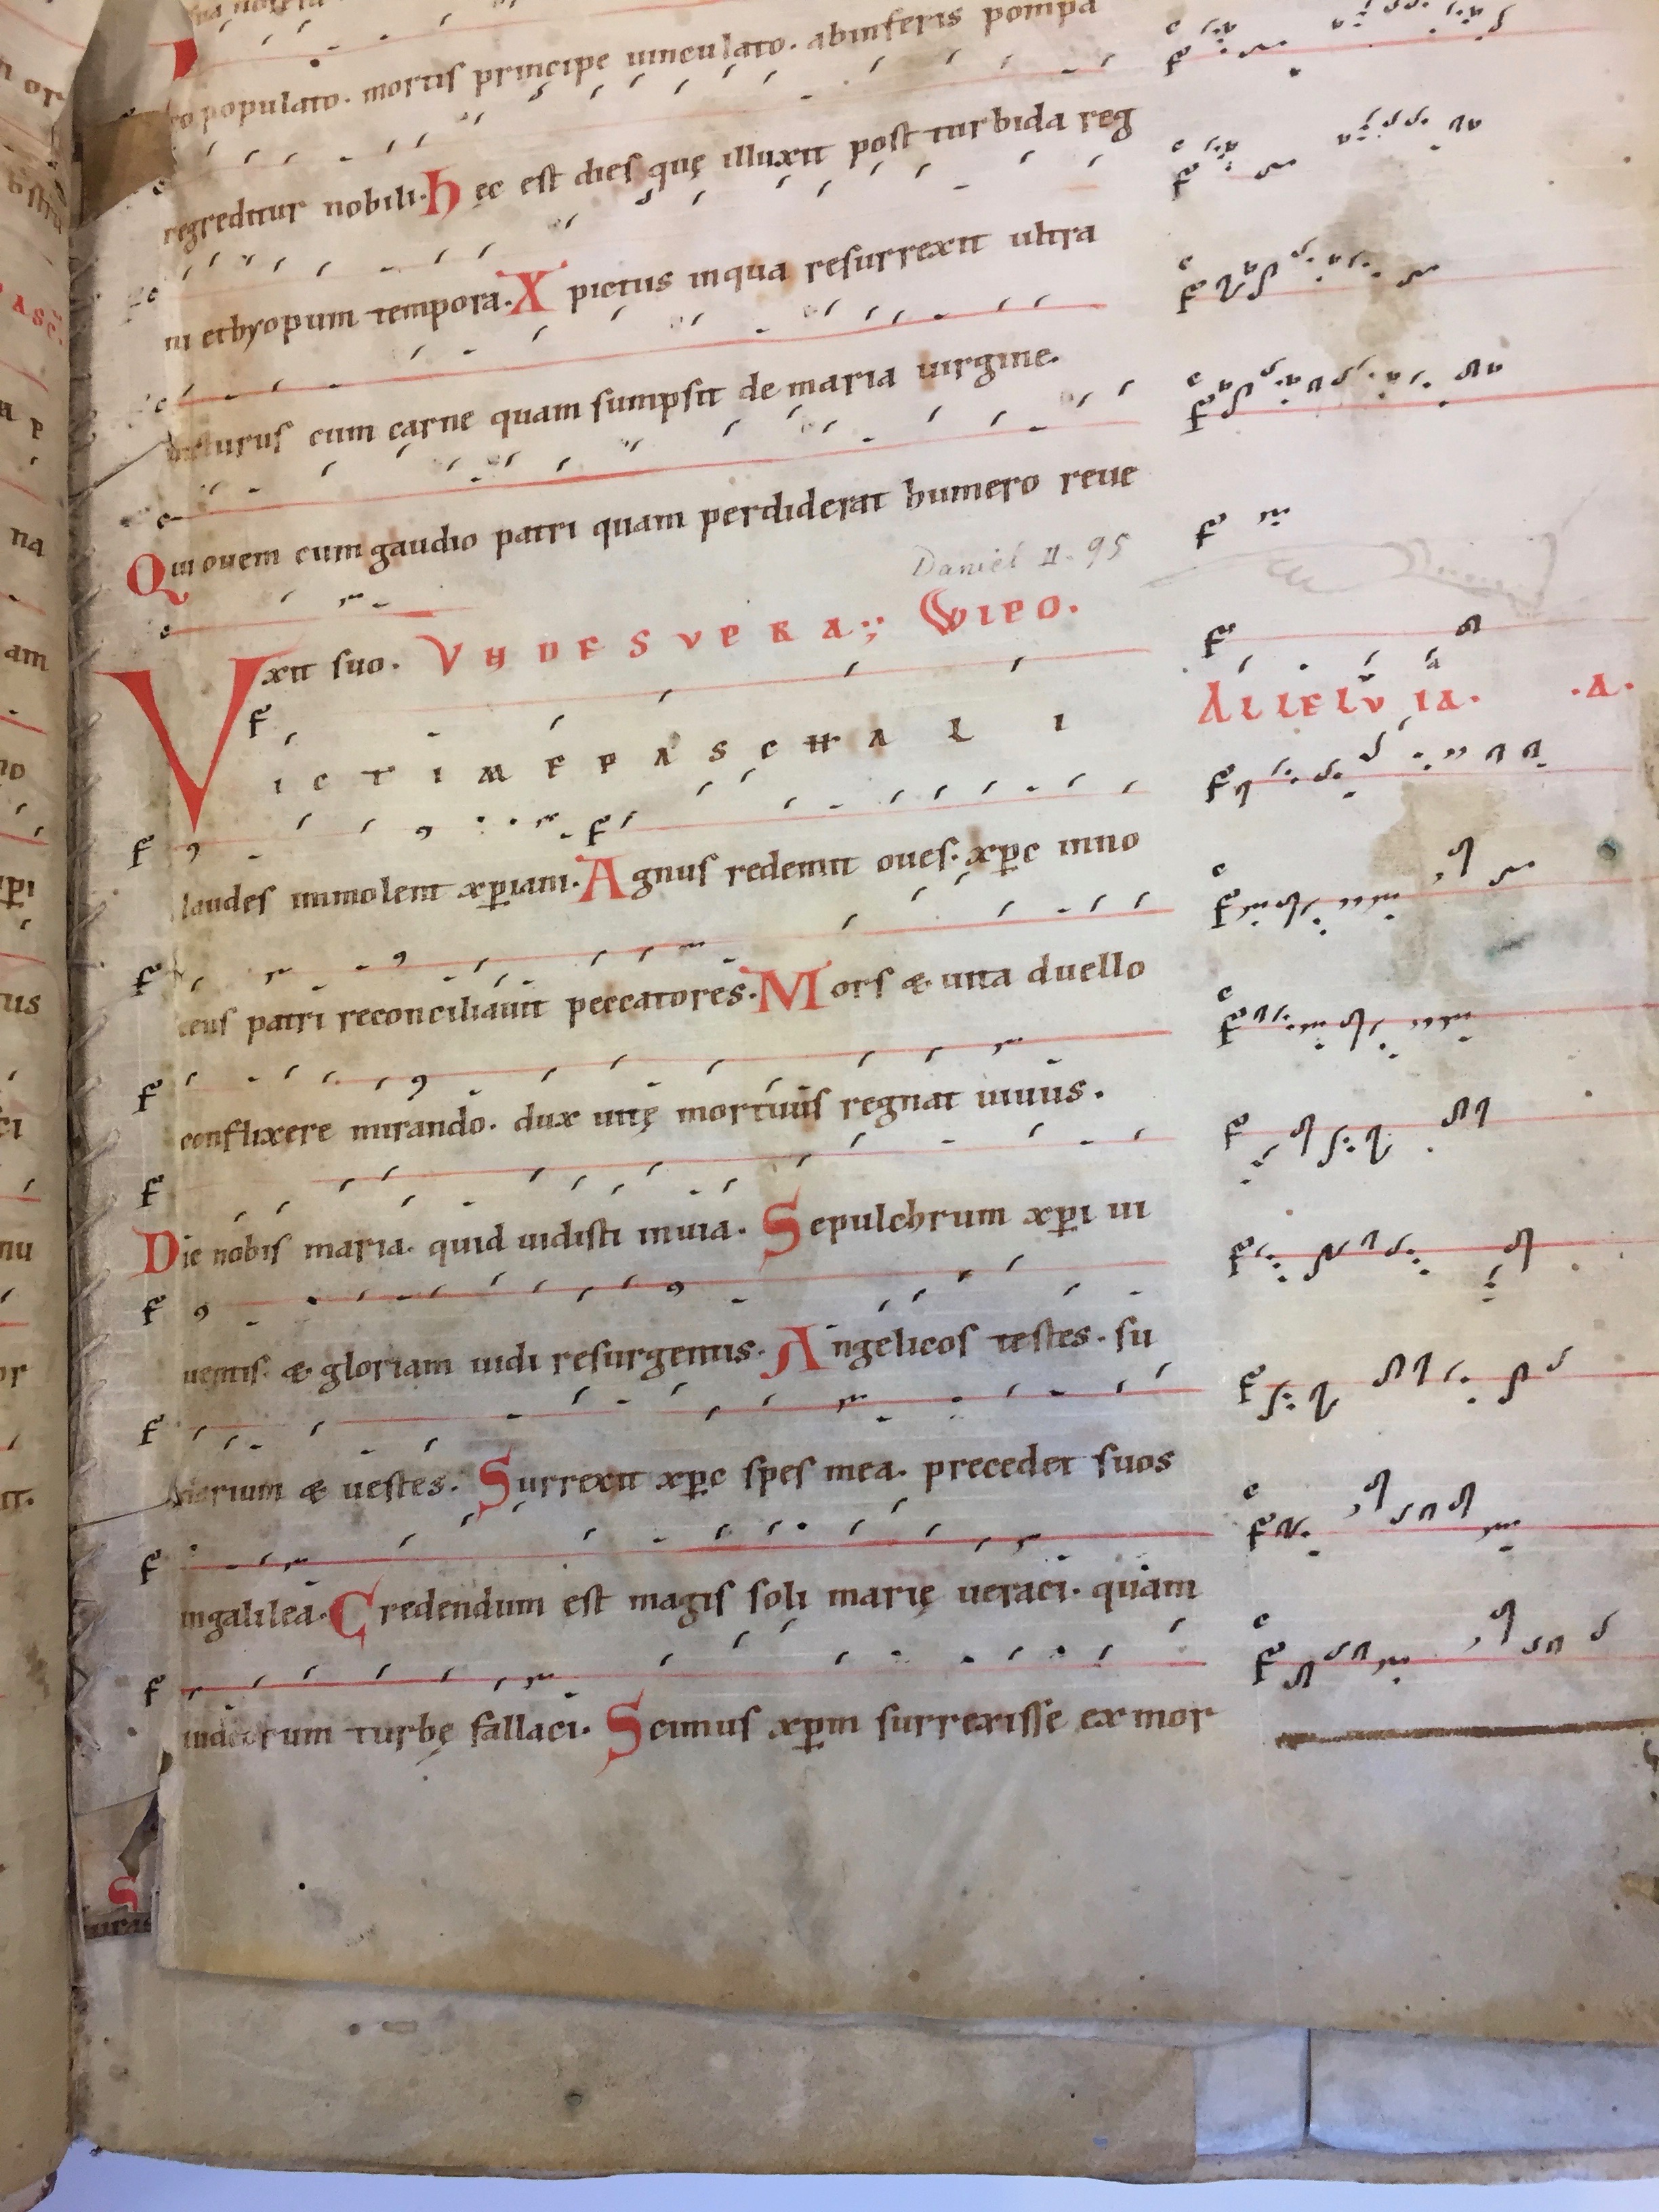 ro populato. mortis principe uinculato. abinferis pompa
regreditur nobili. Hęc est dies quę illuxit post turbida reg
ni ethyopum tempora. Xpictus inqua resurrexit ultra
cum carne quam sumpsit de maria uirgine.
Qui ouem cum gaudio patri quam perdiderat humero reue
Daniel II. 95
xit suo. VNDE SVPRA; WIPO.
VICTIME PASCHALI
ALLELVIA. .A.
laudes immolent xpiani. Agnus redemit oues. xpc inno
cens patri reconciliauit peccatores. Mors & uita duello
conflixere mirando. dux uitę mortuus regnat uiuus.
Dic nobis maria. quid uidisti inuia. Sepulchrum xpi ui
uentis. & gloriam uidi resurgentis. Angelicos testes. su
darium & uestes. Surrexit xpc spes mea. precedet suos
ingalilea. Credendum est magis soli marię ueraci. quam
iudeorum turbę fallaci. Scimus xpm surrexisse ex mor